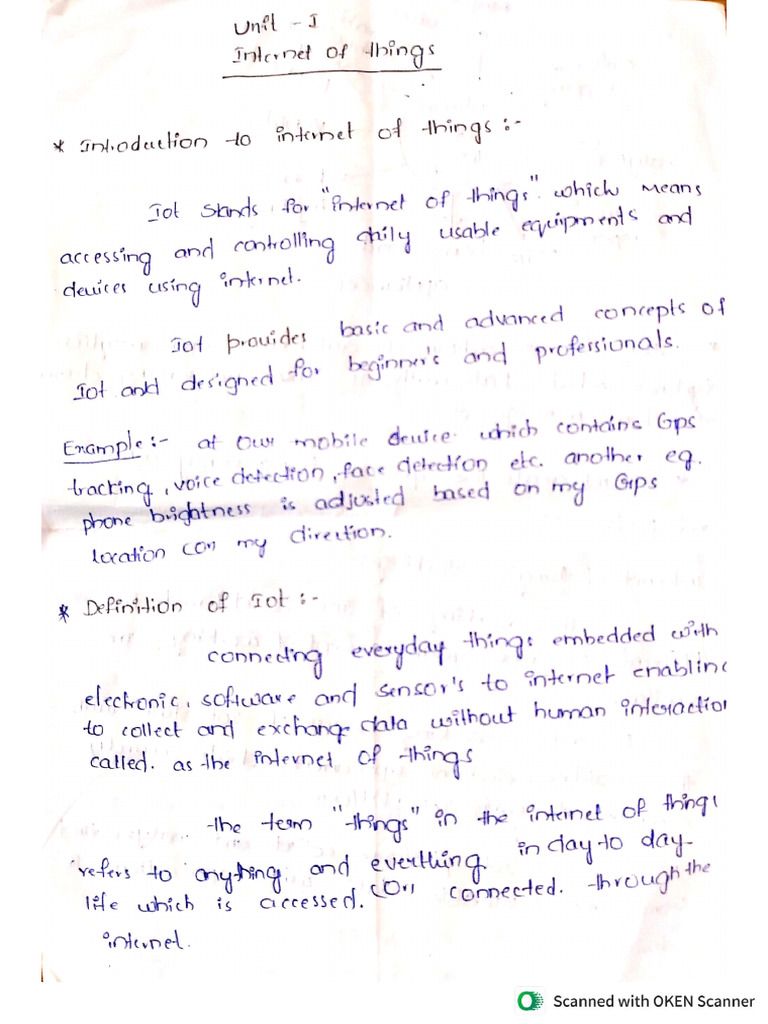 Unit - I
Internet of things
* Introduction to internet of things :-
Iot stands for "internet of things" which means
accessing and controlling daily usable equipments and
devices using internet.
Iot provides basic and advanced concepts of
Iot and designed for beginner's and professionals.
Example :- at our mobile device which contains Gps
tracking, voice detection, face detection etc. another eg.
phone brightness is adjusted based on my Gps
location (or) my direction.
* Definition of Iot :-
connecting everyday things embedded with
electronic, software and sensor's to internet enabling
to collect and exchange data without human interaction
called. as the internet of things
the term "things" in the internet of things
refers to anything and everthing in day to day-
life which is accessed. (or) connected. through the
internet.
Scanned with OKEN Scanner